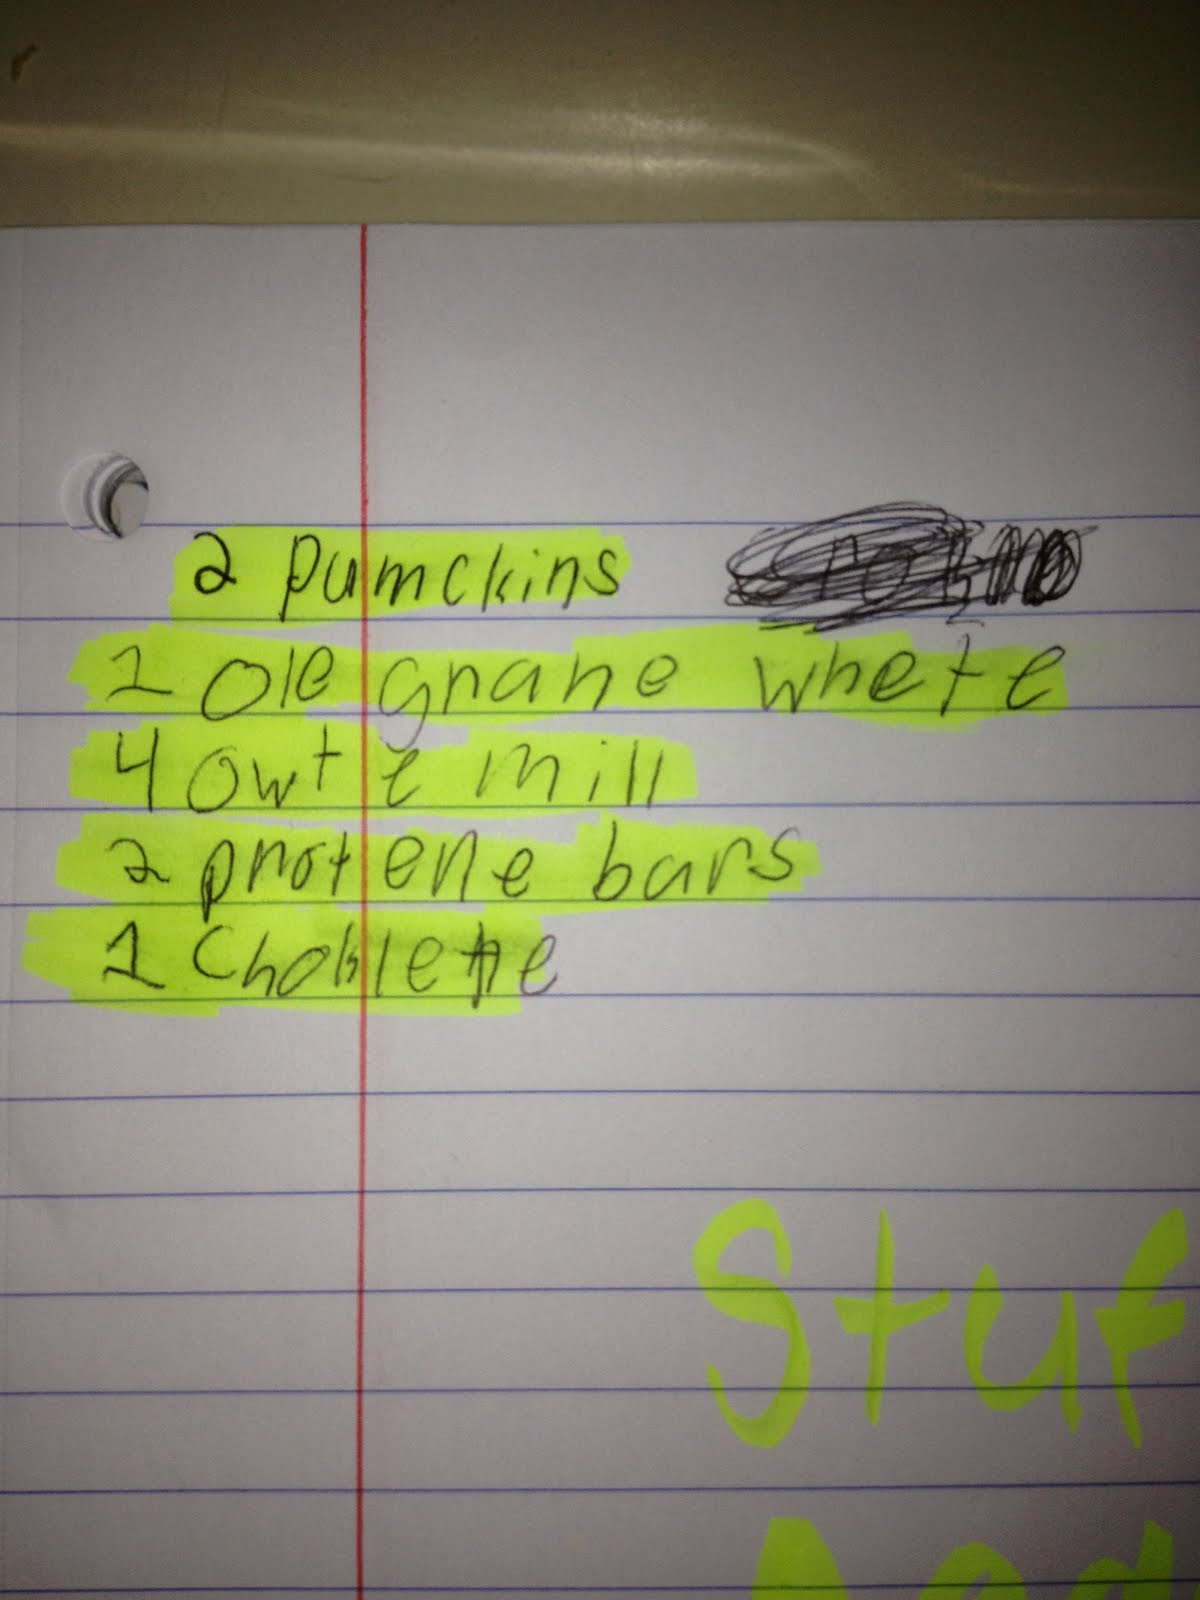 2 Pumckins
1 Ole grane whete
4 Owt e mill
2 protene bars
1 Choklette
Stuf